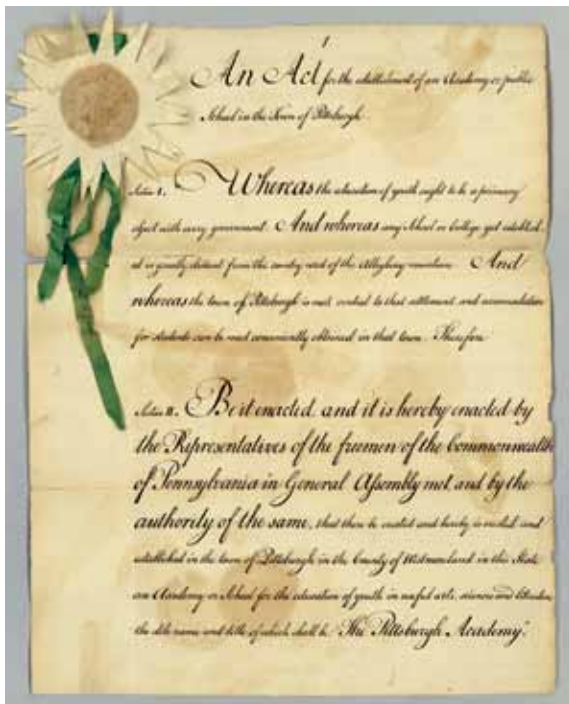 An Act for the establishment of an Academy or public
School in the Town of Pittsburgh.
Section I. Whereas the education of youth ought to be a primary
object with every government. And whereas any School or College yet establish-
ed is greatly distant from the country west of the Alleghany mountain. And
whereas the town of Pittsburgh is most central to that settlement and accomodation
for students can be most conveniently obtained in that town. Therefore
Section II. Be it enacted, and it is hereby enacted by
the Representatives of the freemen of the Commonwealth
of Pennsylvania in General Assembly met, and by the
authority of the same, that there be erected and hereby is erected and
established in the town of Pittsburgh in the County of Westmoreland in this State
an Academy or School for the education of youth in useful arts, sciences and literature,
the stile name and title of which shall be "The Pittsburgh Academy".